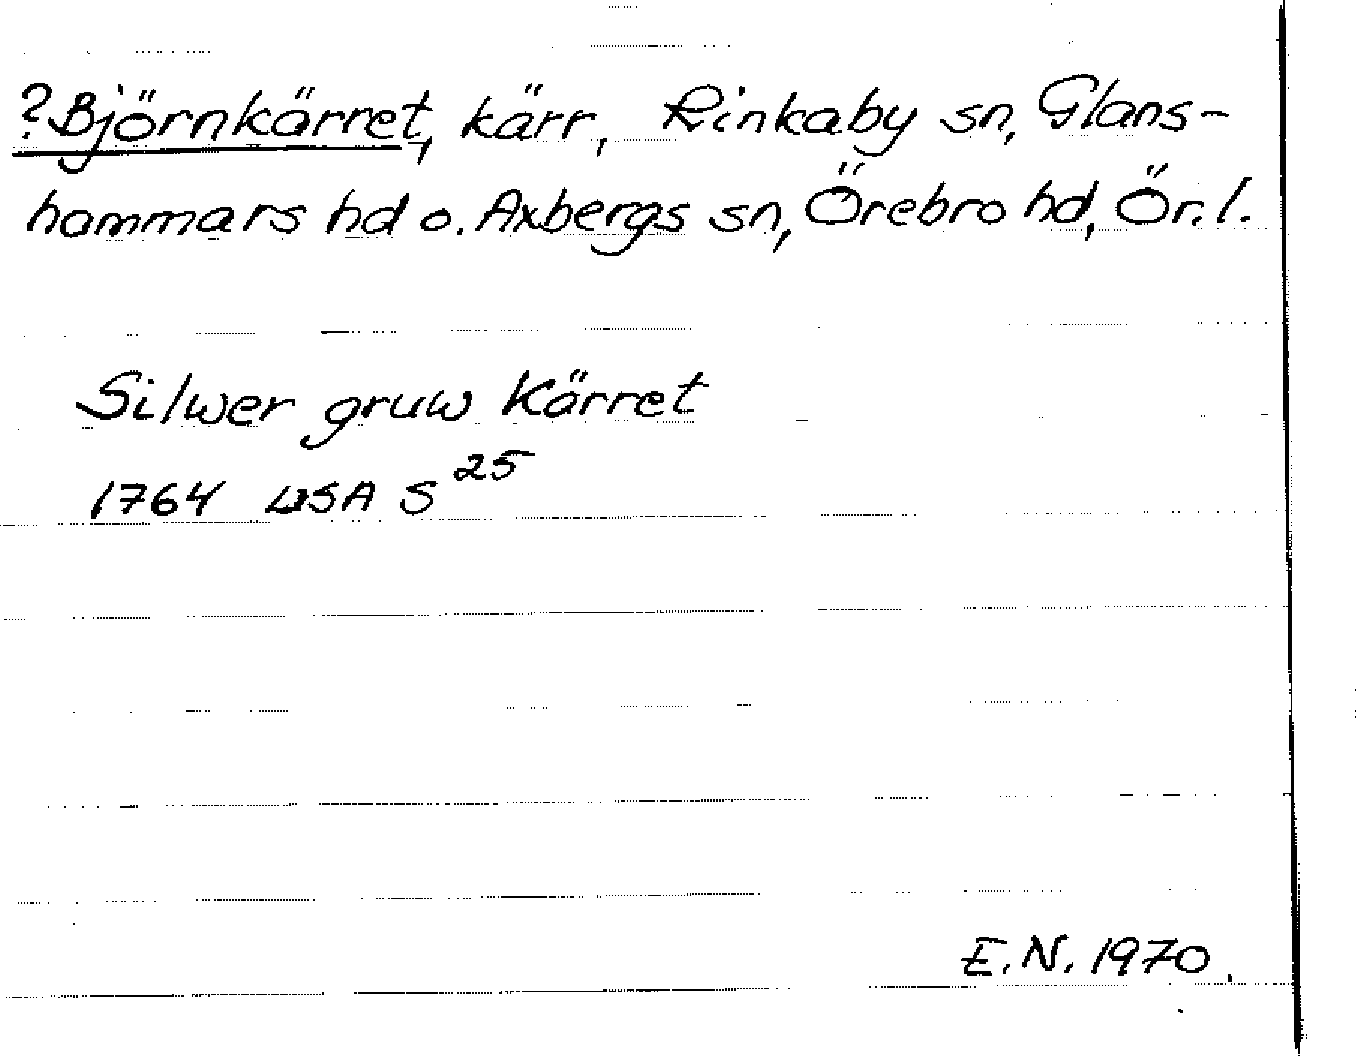 ?Björnkärret, kärr, Rinkaby sn, Glans-
hammars hd o. Axbergs sn, Örebro hd, Ör. l.
Silwer gruw Kärret
1764 LSA S²⁵
E.N. 1970.